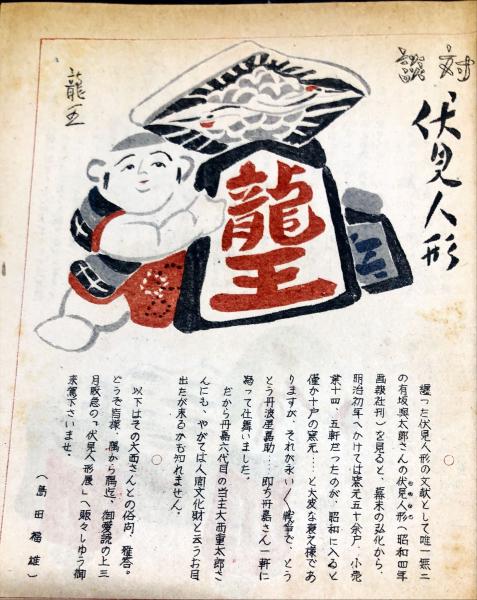 対談
伏見人形
龍王
龍王
纒った伏見人形の文献として唯一無二
の有坂與太郎さんの伏見人形(昭和四年
画報社刊)を見ると、幕末の弘化から、
明治初年へかけては窯元五十余戸、小売
業十四、五軒だったのが、昭和に入ると
僅か十戸の窯元……と大変な衰え様であ
りますが、それが永い〱戦争で、とう
とう丹波屋嘉助……即ち丹嘉さん一軒に
為って仕舞いました。
だから丹嘉六代目の当主大西重太郎さ
んにも、やがては人間文化財と云うお目
出たが来るかも知れません。
以下はその大西さんとの俗問、雅答。
どうぞ皆様、隅から隅迄、御愛読の上三
月阪急の「伏見人形展」へ賑々しゆう御
来駕下さいませ。
(島田福雄)